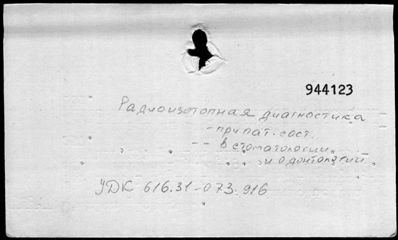 944123
Радиоизотопная диагностика
- при пат. сост.
-- в стоматологии
и одонтологии
УДК 616.31-073.916